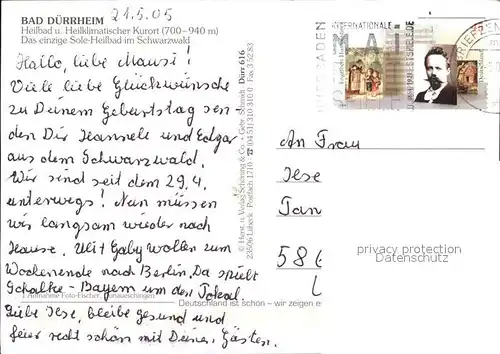 BAD DÜRRHEIM
21.5.05
Heilbad u. Heilklimatischer Kurort (700–940 m)
Das einzige Sole-Heilbad im Schwarzwald
Hallo, liebe Mausi!
Viele liebe Glückwünsche
zu Deinem Geburtstag sen-
den Dir Hannele und Edgar
aus dem Schwarzwald.
Wir sind seit dem 29.4.
unterwegs! Nun müssen
wir langsam wieder nach
Hause. Ulit Gaby wollen zum
Wochenende nach Berlin. Da spielt
Schalke - Bayern um den Pokal
1 Aufnahme Foto-Fischer, Donaueschingen
Liebe Ilse, bleibe gesund und
feier recht schön mit Deinen Gästen.
Deutschland ist schön – wir zeigen e
© Horst u. Verlag Schöning & Co. · Gebr. Schmidt Dürr 616
23506 Lübeck Postfach 1710 (04 51) 3 10 31 0 Fax 3 52 83
INTERNATIONALE
MAI
An Frau
Ilse
Tan
58
privacy protection
Datenschutz